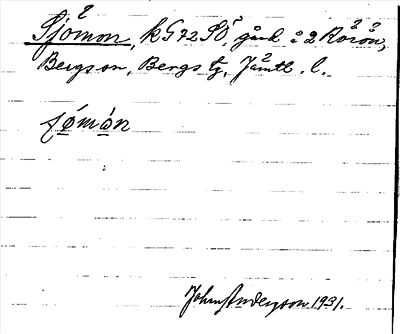 Sjömon, k G72 SO, gård å 2 Rörön,
Bergs sn, Bergs tg, Jämtl. l.
sjómón
John Anderson 1931.